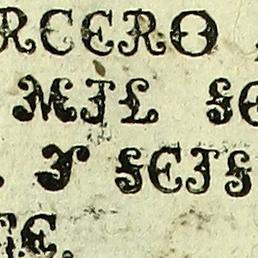 RCERO
MIL SE
. Y SEIS
TE.